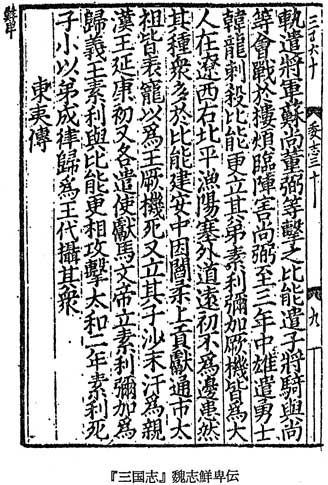 三百六十 魏志三十 九
軌遣將軍蘇尚董弼等擊之比能遣子將騎與尚
等會戰於樓煩臨陣害尚弼至三年中雄遣勇士
韓龍刺殺比能更立其弟素利彌加厥機皆為大
人在遼西右北平漁陽塞外道遠初不為邊患然
其種衆多於比能建安中因閻柔上貢獻通市太
祖皆表寵以為王厥機死又立其子沙末汗為親
漢王延康初又各遣使獻馬文帝立素利彌加為
歸義王素利與比能更相攻擊太和二年素利死
子小以弟成律歸為王代攝其衆
東夷傳
鮮卑
『三国志』魏志鮮卑伝